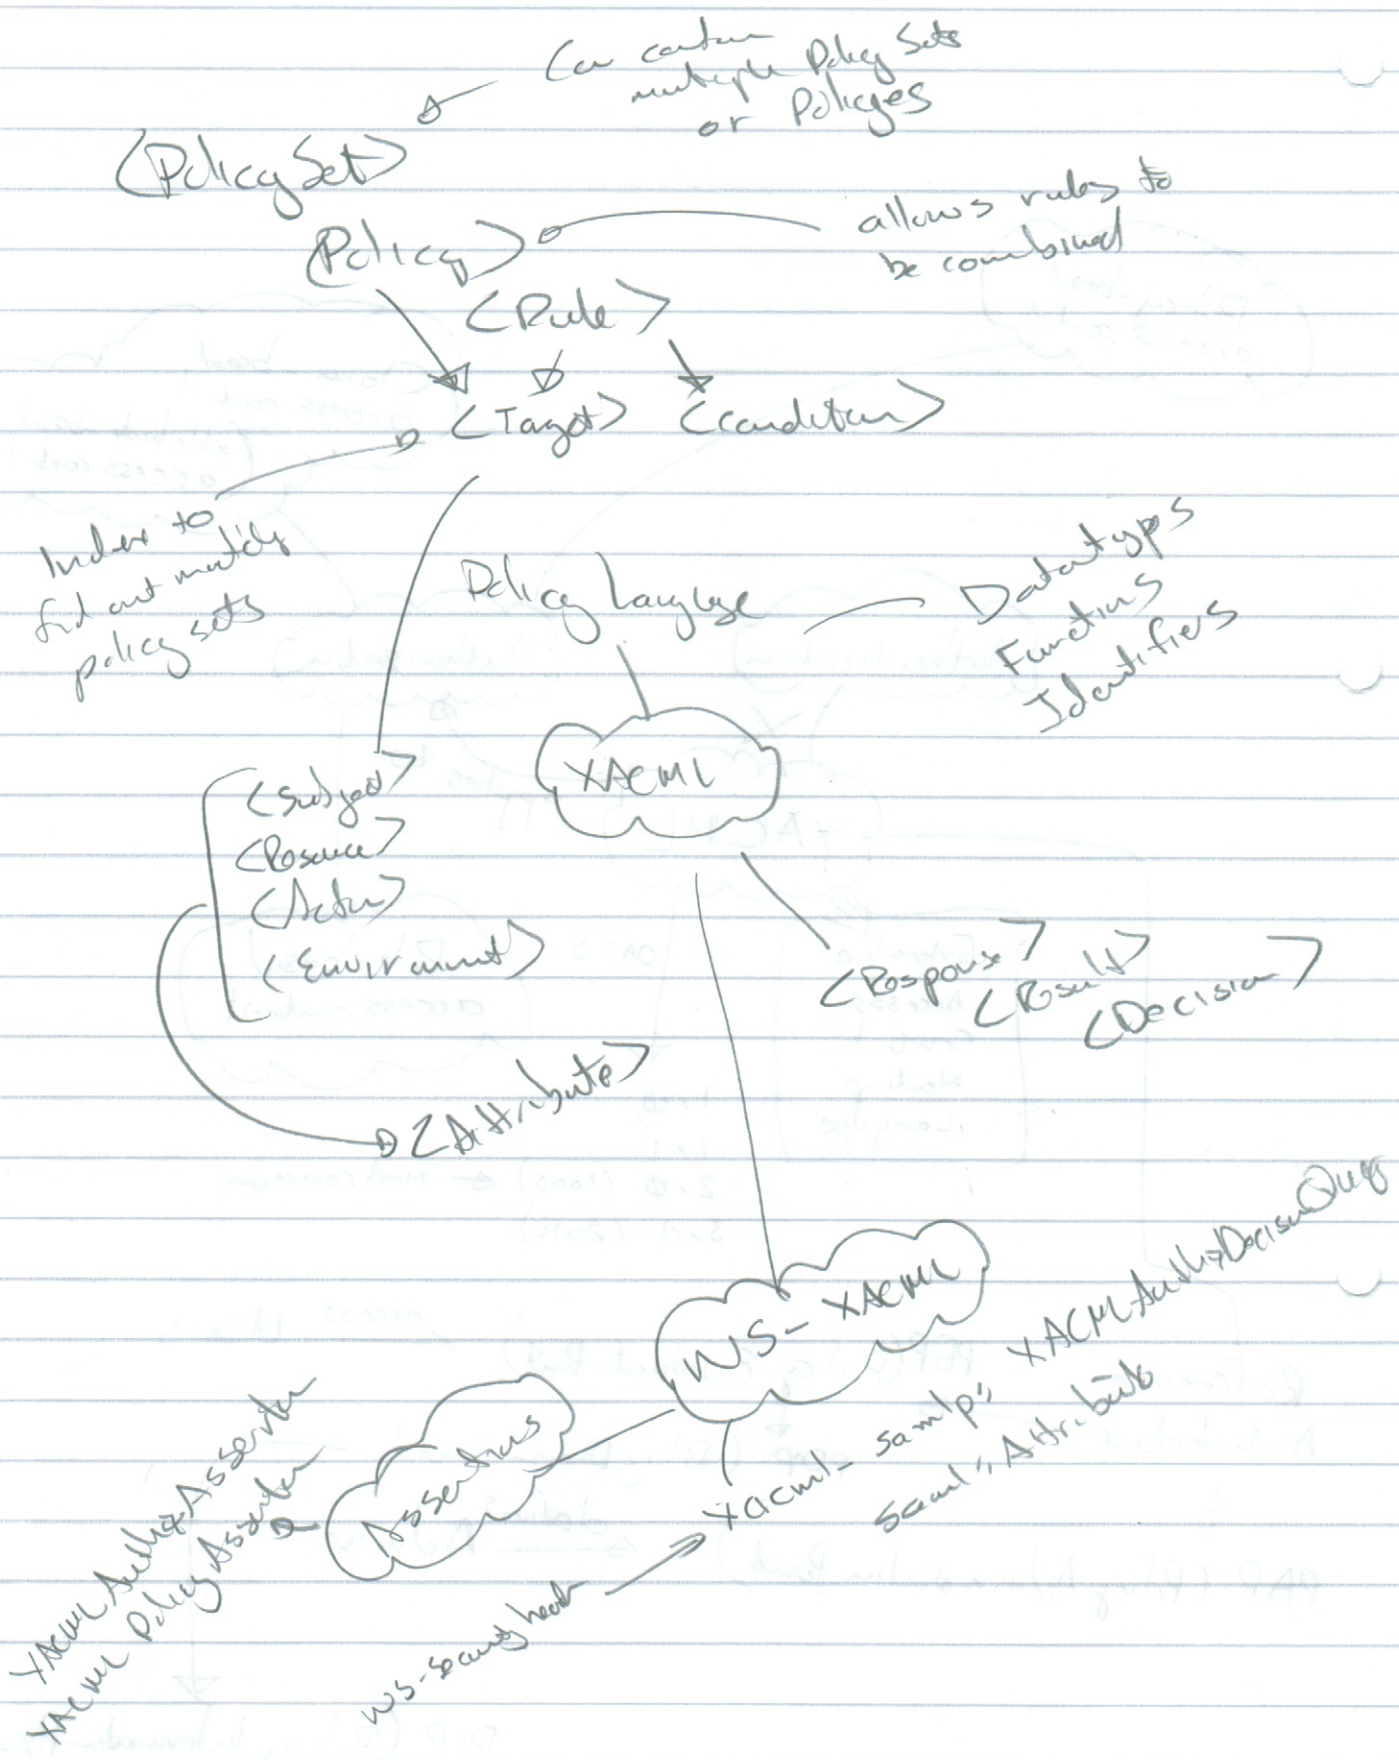 Can contain
multiple Policy Sets
or Policyes
<PolicySet>
allows rules to
be combined
<Policy>
<Rule>
<Target> <Condition>
Index to
find out matching
policy sets
Policy Language
Datatypes
Functions
Identifiers
XACML
<Subject>
<Resource>
<Action>
<Environment>
<Response>
<Result>
<Decision>
<Attribute>
WS-XACML
Assertions
XACMLAuthzAssertion
XACML PolicyAssertion
xacml-samlp:: XACMLAuthzDecisionQuery
saml:: Attribute
WS-Security header